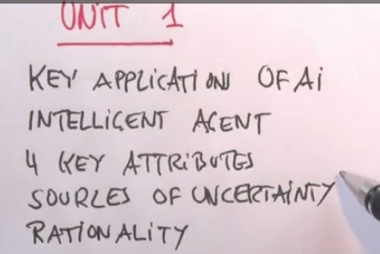 UNIT 1
KEY APPLICATIONS OF Ai
INTELLIGENT AGENT
4 KEY ATTRiBUTES
SOURCES OF UNCERTAINTY
RATIONALITY